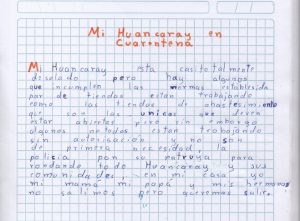 Mi Huancaray en
Cuarentena
Mi Huancaray esta casi totalmente
desolado pero hay algunos
que incumplen las normas establesida
por de tiendas estan trabajando
como las tiendas de abastesimiento
que son las unicas que deven
estar abiertas pero sin embargo
algunos no todos estan trabajando
sin autorisacion y no son
de primera necesidad, la
policia pon su patrulla para
rondando todo Huancaray y sus
comunidades, en mi casa yo
mi mama mi papá y mis hermanos
no salimos pero queremos salir.